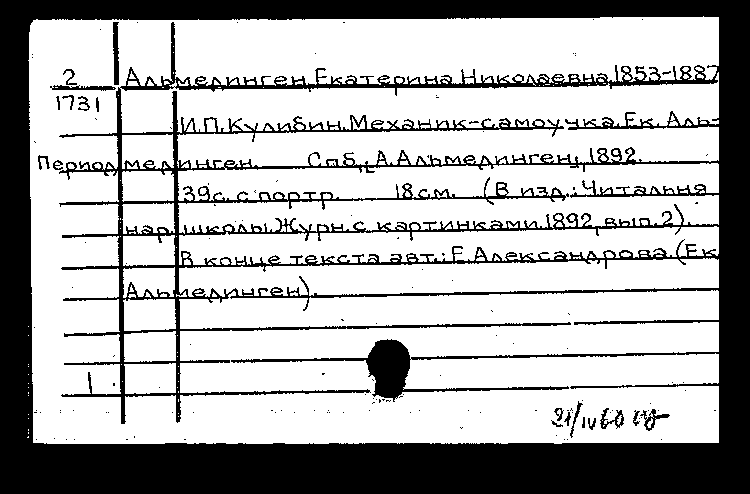 2 Альмединген, Екатерина Николаевна, 1853-1887
1731
И.П. Кулибин. Механик-самоучка. Ек. Аль-
Период мединген. Спб., [А. Альмединген], 1892.
39 с. с портр. 18 см. (В изд.: Читальня
нар. школы. Журн. с картинками. 1892, вып. 2).
В конце текста авт.: Е. Александрова (Ек.
Альмединген).
1
21/IV 60